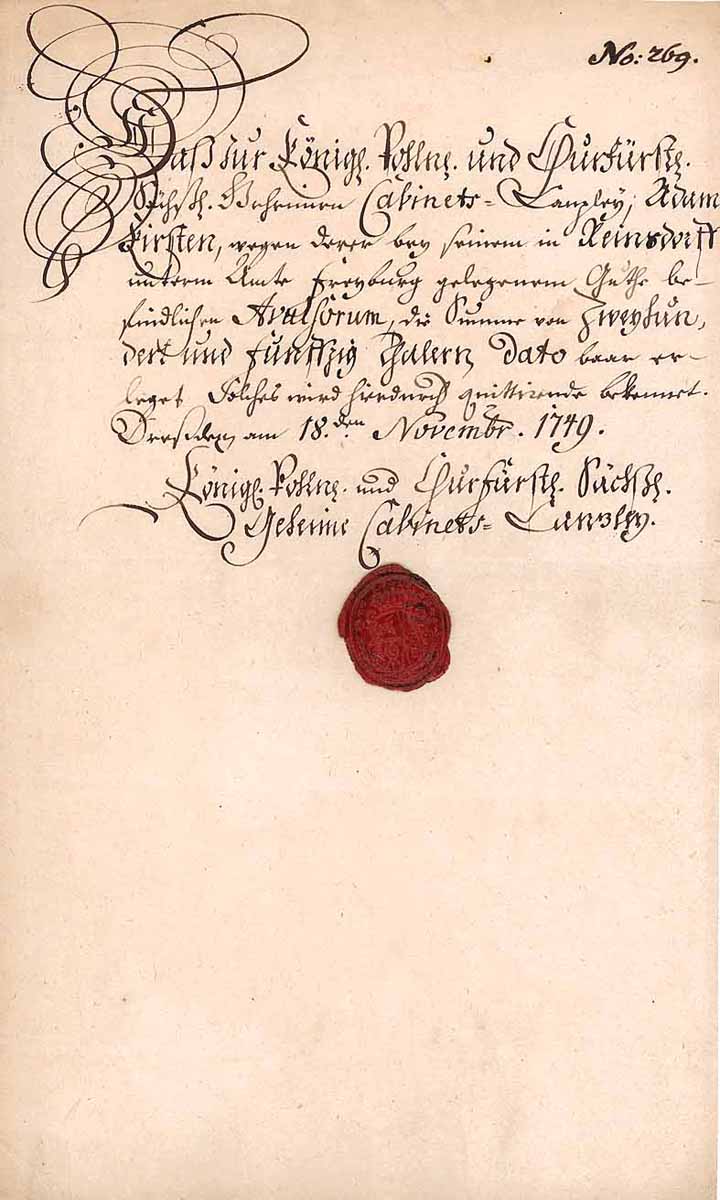 No: 269.
Daß zur Königl. Pohln. und Churfürstl.
Sächßl. Geheimen Cabinets-Canzley, Adam
Kirsten, wegen derer bey seinem in Reinsdorff
unterm Amte Freyburg gelegenem Guthe be-
findlichen Avulsorum, die Summe von Zweyhun,
dert und funffzig Thalern dato baar er-
leget Solches wird hierdurch quittirende bekennet.
Dreßden, am 18.den Novembr. 1749.
Königl. Pohln. und Churfürstl. Sächßl.
Geheime Cabinets-Canzley.